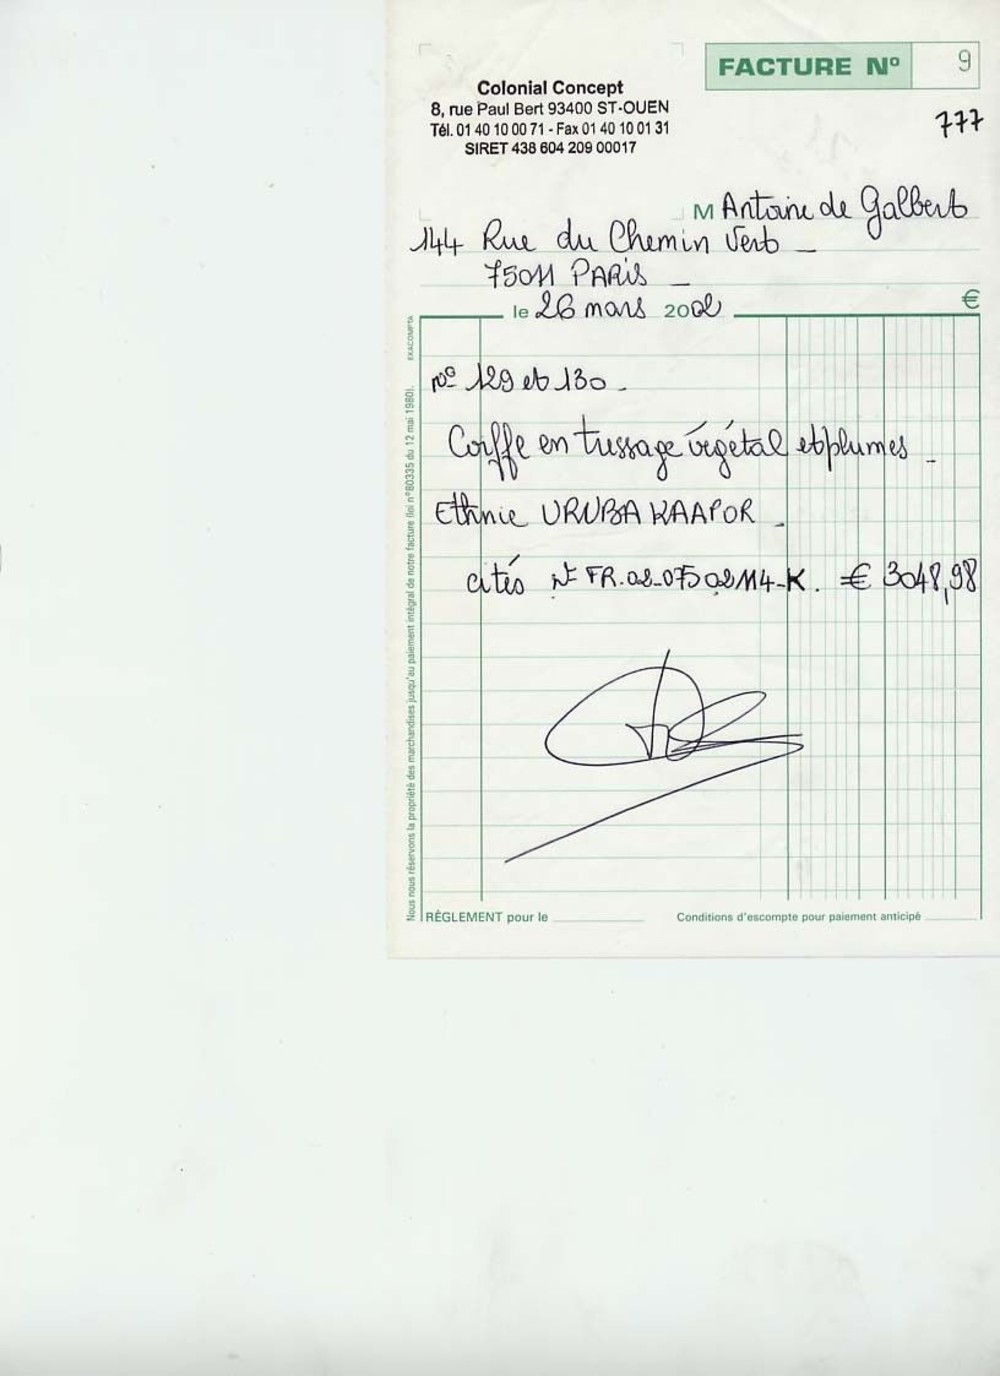 FACTURE Nº 9
Colonial Concept
8, rue Paul Bert 93400 ST-OUEN
Tél. 01 40 10 00 71 - Fax 01 40 10 01 31
SIRET 438 604 209 00017
777
M Antoine de Galbert
144 Rue du Chemin Vert
75011 PARIS
le 26 mars 2002
€
nº 129 et 130.
Coiffe en tussage végétal et plumes
Ethnie URUBA KAAPOR
cités Nº FR.02-075 02114-K. € 3048,98
RÈGLEMENT pour le
Conditions d'escompte pour paiement anticipé
Nous nous réservons la propriété des marchandises jusqu'au paiement intégral de notre facture (loi n°80335 du 12 mai 1980).
EXACOMPTA